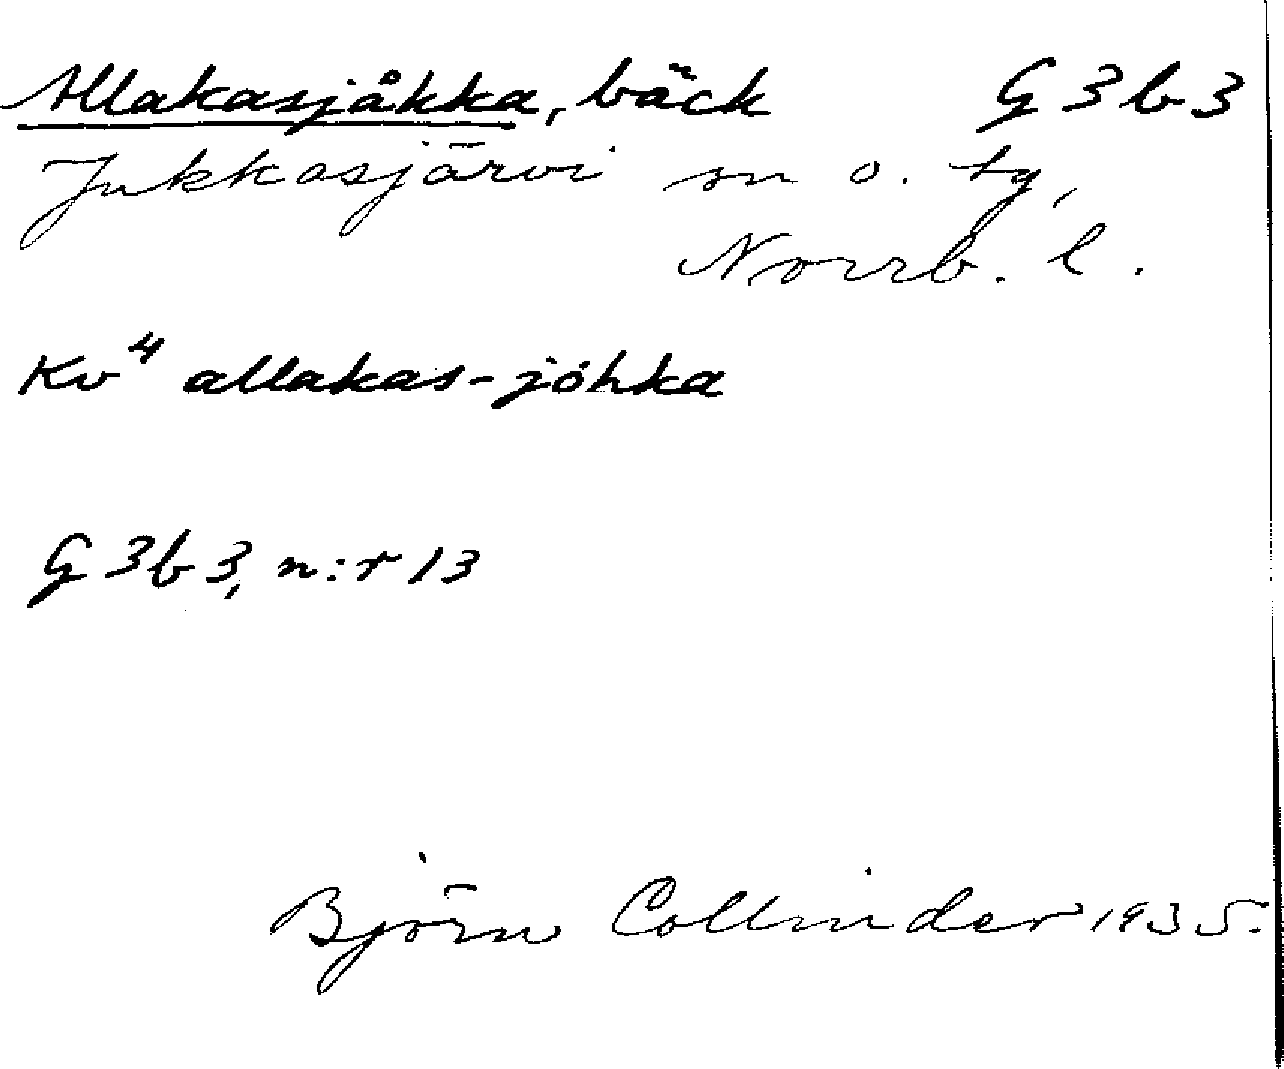 Allakasjåkka, bäck G 3 b 3
Jukkasjärvi sn o. tg,
Norrb. l.
Kv⁴ allakas-jóhka
G 3 b 3, n:r 13
Björn Collinder 1935.